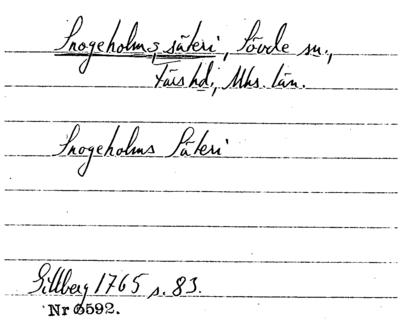 Snogeholms säteri, Sövde sn.,
Färs hd., Mhs. län.
Snogeholms Säteri
Gillberg 1765 s. 83.
Nr 6592.